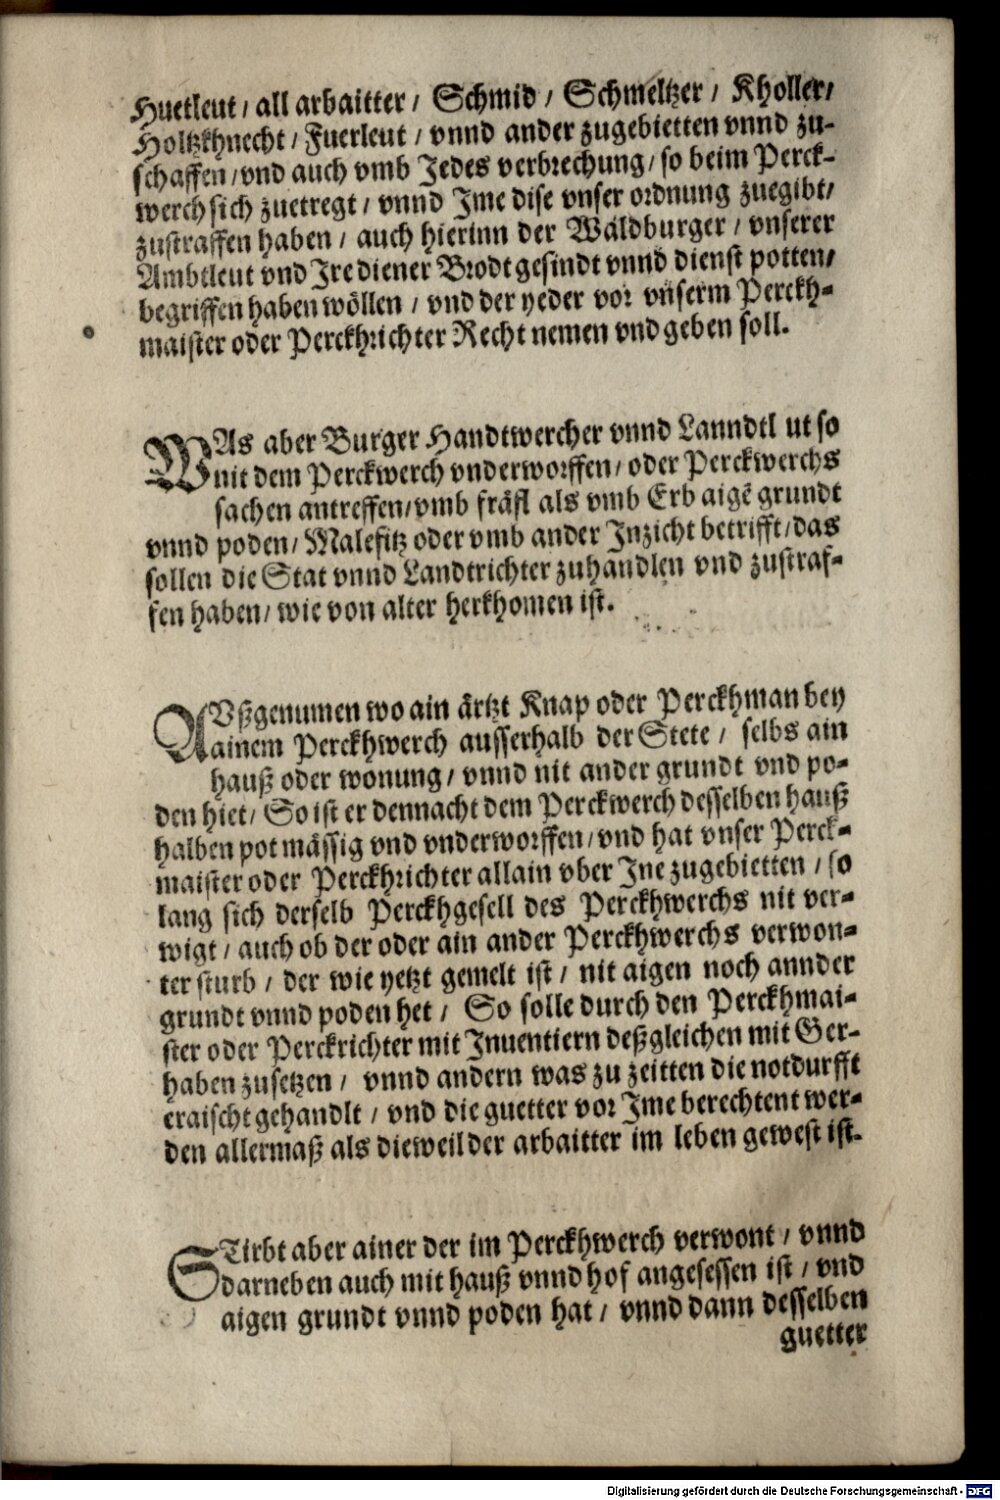 Huetleut / all arbaitter / Schmid / Schmeltzer / Kholler/
Holtzkhnecht / Fuerleut / vnnd ander zugebietten vnnd zu-
schaffen /vnd auch vmb Jedes verbrechung/ so beim Perck-
werch sich zuetregt / vnnd Jme dise vnser ordnung zuegibt/
zustraffen haben / auch hierinn der Waldburger / vnserer
Ambtleut vnd Jre diener Brodtgesindt vnnd dienst potten/
begriffen haben wöllen / vnd der yeder vor vnserm Perckh-
maister oder Perckhrichter Recht nemen vnd geben soll.
WAs aber Burger Handtwercher vnnd Lanndtl ut so
nit dem Perckwerch vnderworffen/ oder Perckwerchs
sachen antreffen/vmb fräfl als vmb Erb aigē grundt
vnnd poden/ Malefitz oder vmb ander Jnzicht betrifft/das
sollen die Stat vnnd Landtrichter zuhandlen vnd zustraf-
fen haben/ wie von alter herkhomen ist.
AVßgenumen wo ain ärtzt Knap oder Perckhman bey
ainem Perckhwerch ausserhalb der Stete / selbs ain
hauß oder wonung/ vnnd nit ander grundt vnd po-
den hiet/ So ist er dennacht dem Perckwerch desselben hauß
halben pot mässig vnd vnderworffen/vnd hat vnser Perck-
maister oder Perckhrichter allain vber Jne zugebietten / so
lang sich derselb Perckhgesell des Perckhwerchs nit ver-
wigt / auch ob der oder ain ander Perckhwerchs verwon-
ter sturb / der wie yetzt gemelt ist / nit aigen noch annder
grundt vnnd poden het / So solle durch den Perckhmai-
ster oder Perckrichter mit Jnuentiern deßgleichen mit Ger-
haben zusetzen / vnnd andern was zu zeitten die notdurfft
eraischt gehandlt / vnd die guetter vor Jme berechtent wer-
den allermaß als dieweil der arbaitter im leben gewest ist.
STirbt aber ainer der im Perckhwerch verwont / vnnd
darneben auch mit hauß vnnd hof angesessen ist / vnd
aigen grundt vnnd poden hat / vnnd dann desselben
guetter
Digitalisierung gefördert durch die Deutsche Forschungsgemeinschaft - DFG